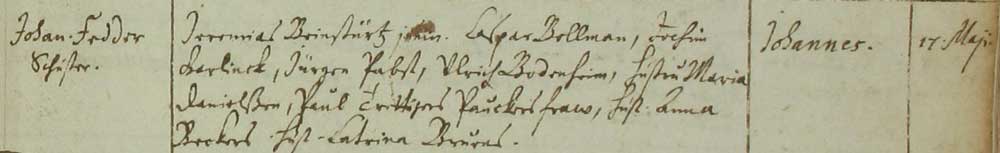 Johan Fedder
Schuster.
Jeremias Beinstürtz jun. Caspar Bellman, Jochim
Carlinck, Jürgen Pabst, Ulrich Bodenheim, Husfru Maria
Danielßen, Paul Trittigers Pauckers fraw, Husf. Anna
Beckers Husf. Catrina Bruens.
Johannes.
17. Maji